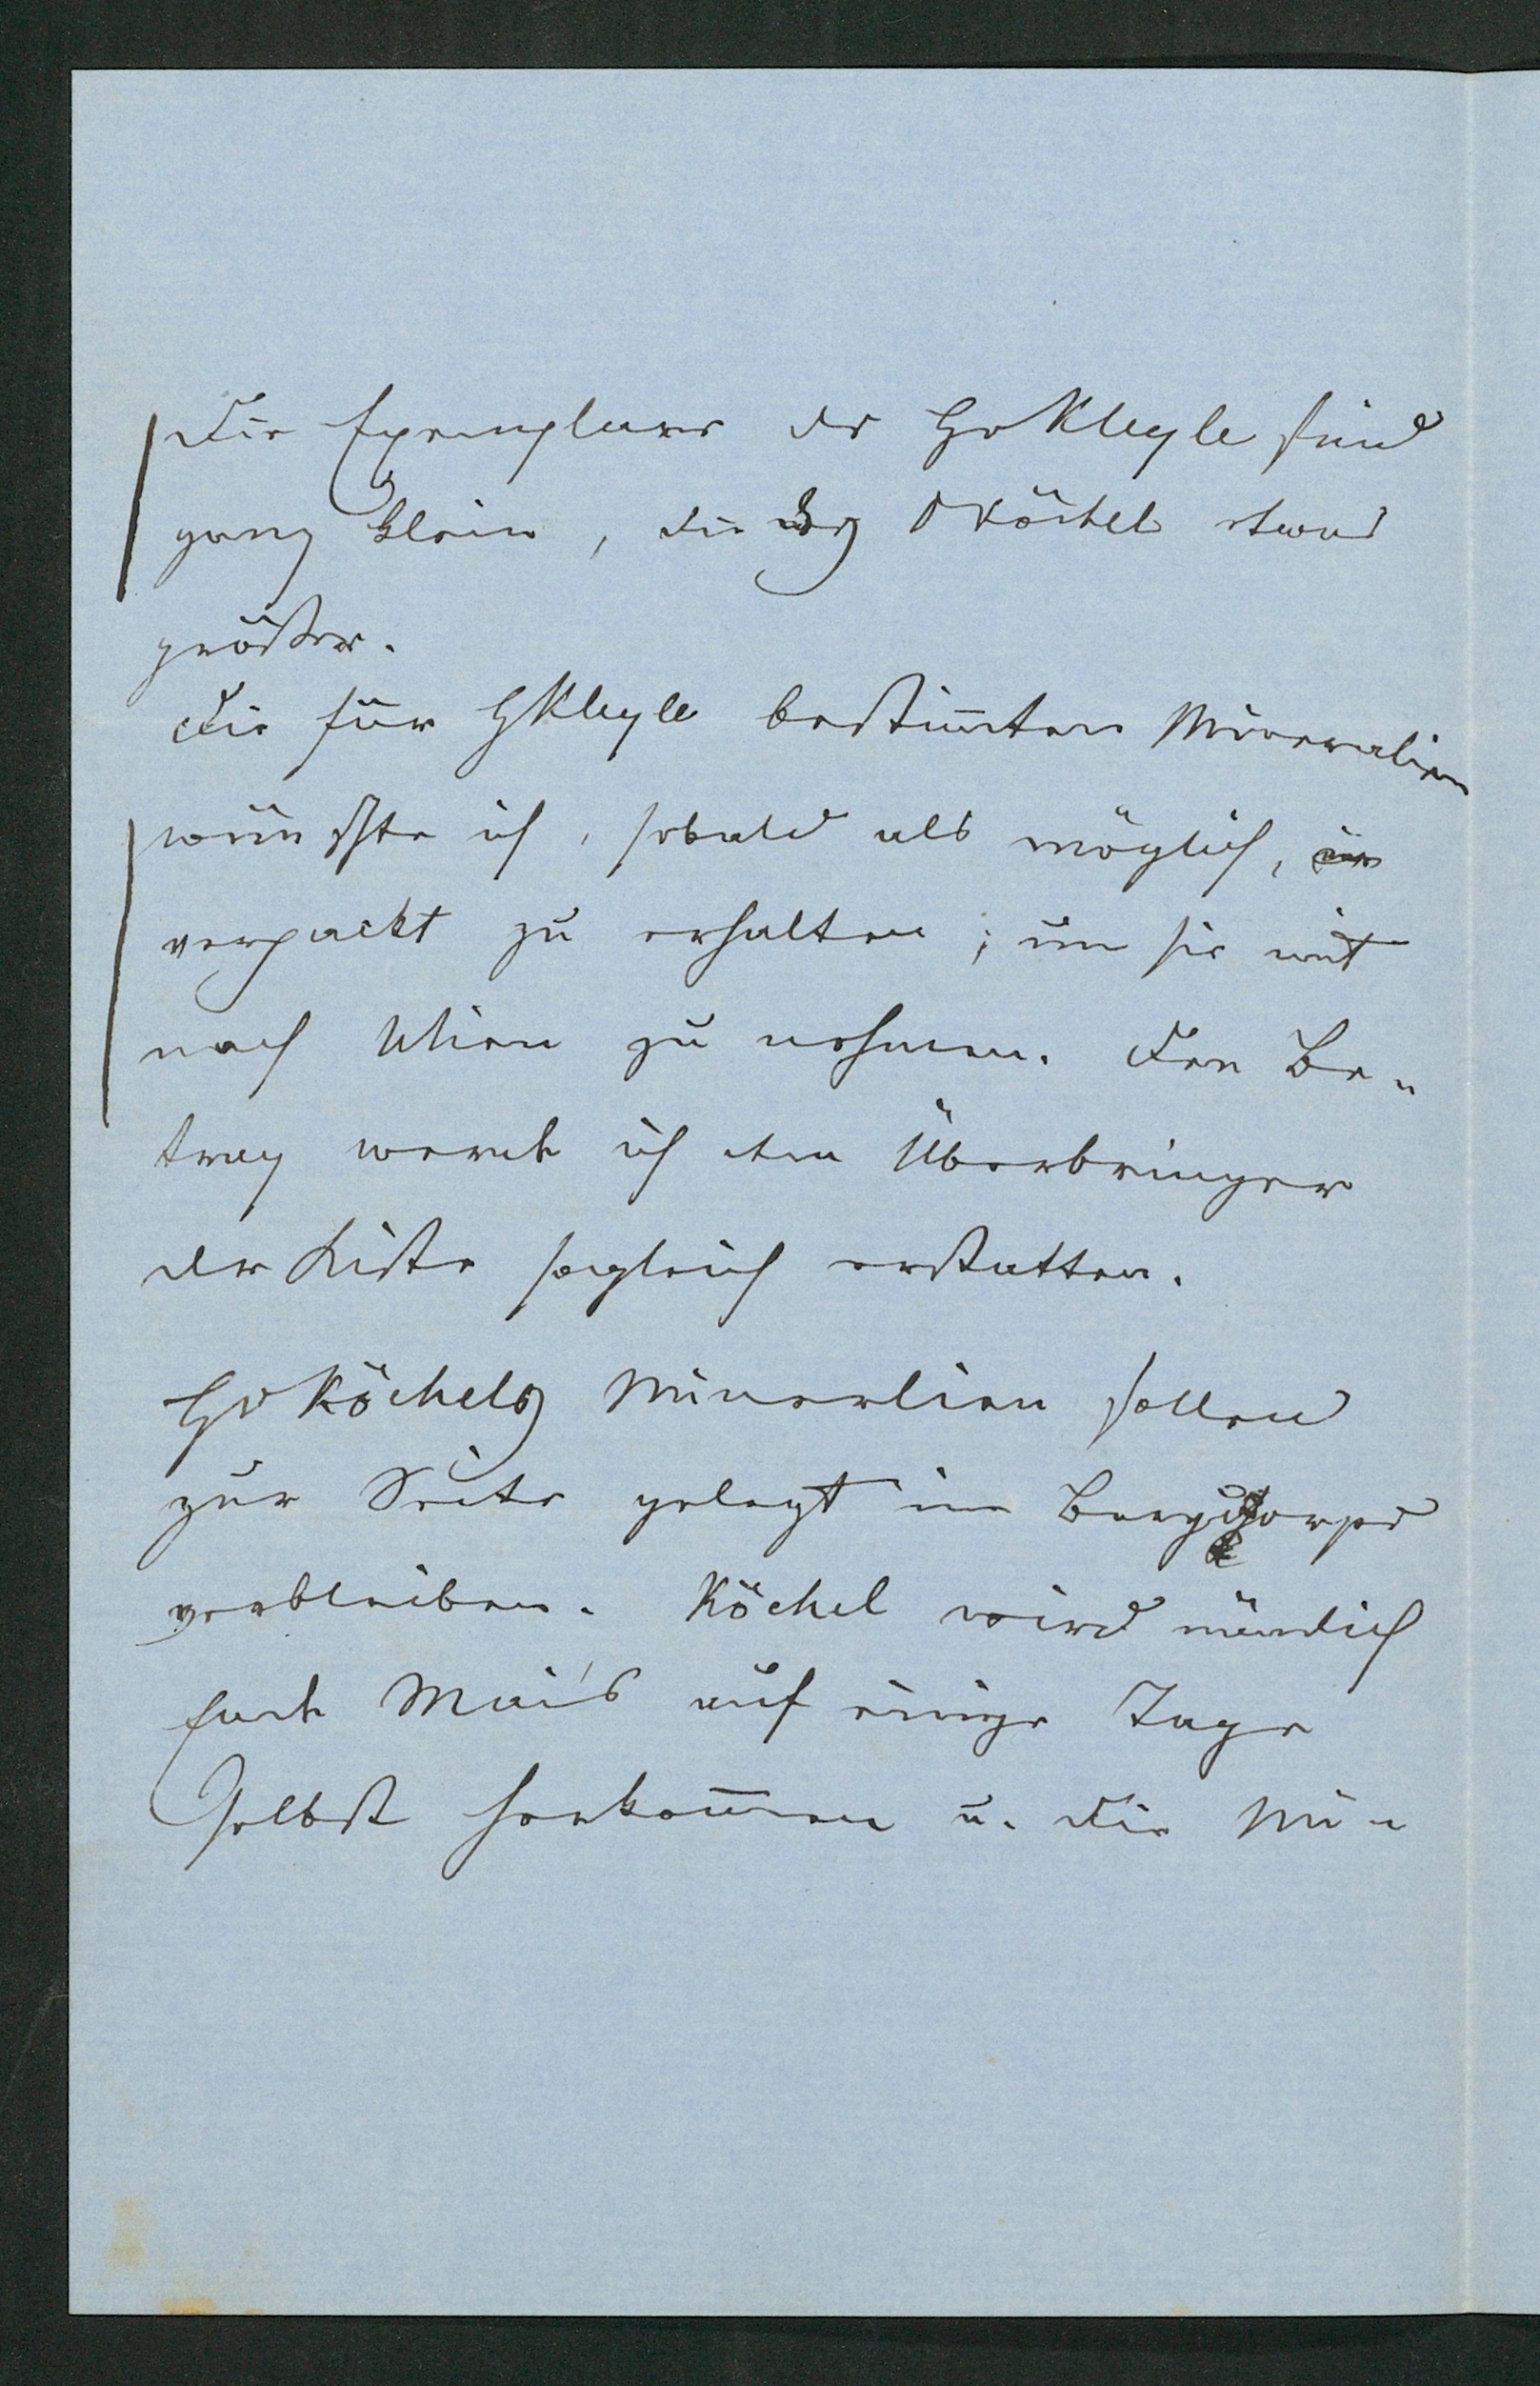 Die Exemplare des Hr Kleyle sind
ganz klein, die des Dr Köchel etwas
größer.
Die für H Kleyle bestim̅ten Mineralien
wünschte ich, sobald als möglich,
verpackt zu erhalten; um sie mit
nach Wien zu nehmen. Den Be-
trag werde ich dem Überbringer
der Kiste sogleich erstatten.
Hr Köchels Mineralien sollen
zur Seite gelegt im Bergcorps
verbleiben. Köchel wird nämlich
Ende Mai's auf einige Tage
selbst herkom̅en u. die Mi-